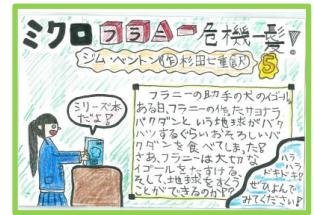 ミクロフラニー危機一髪！
ジム・ベントン作 杉田七重訳 5
シリーズ本だよ！
フラニーの助手の犬のイゴール。
ある日、フラニーの作ったサヨナラ
バクダンという地球がバク
ハツするぐらいおそろしいバ
クダンを食べてしまった!!
さあ、フラニーは大切な
イゴールをたすける、
そして、地球をすくう
ことができるのか!?
ハラ
ハラ
ドキドキ!
ぜひよんで
みてください!